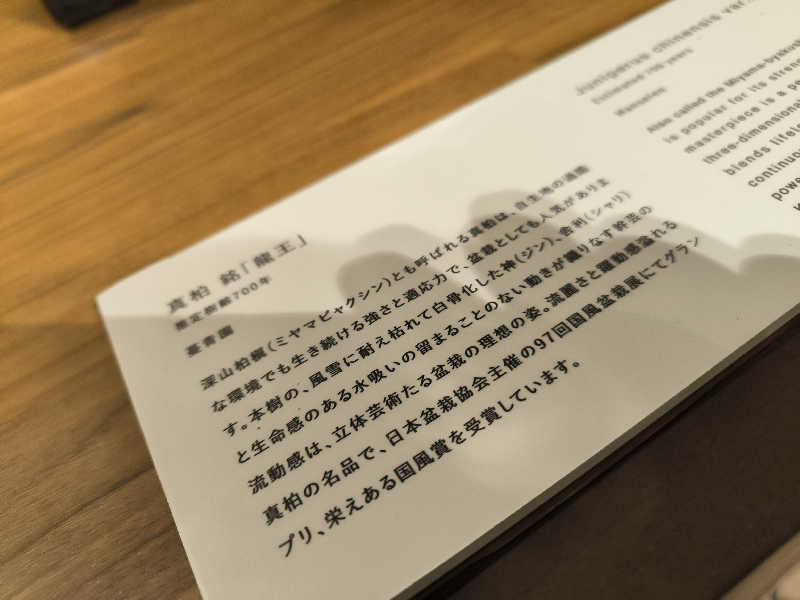 真柏 銘「龍王」
推定樹齢700年
蔓青園
深山柏槇（ミヤマビャクシン）とも呼ばれる真柏は、自生地の過酷
な環境でも生き続ける強さと適応力で、盆栽としても人気がありま
す。本樹の、風雪に耐え枯れて白骨化した神（ジン）、舎利（シャリ）
と生命感のある水吸いの留まることのない動きが織りなす幹芸の
流動感は、立体芸術たる盆栽の理想の姿。流麗さと躍動感溢れる
真柏の名品で、日本盆栽協会主催の97回国風盆栽展にてグラン
プリ、栄えある国風賞を受賞しています。
Juniperus chinensis var.
Estimated 700 years
Manseien
Also called the Miyama-byakush
is popular for its stren
masterpiece is a pe
three-dimensional
blends lifel
continuou
powe